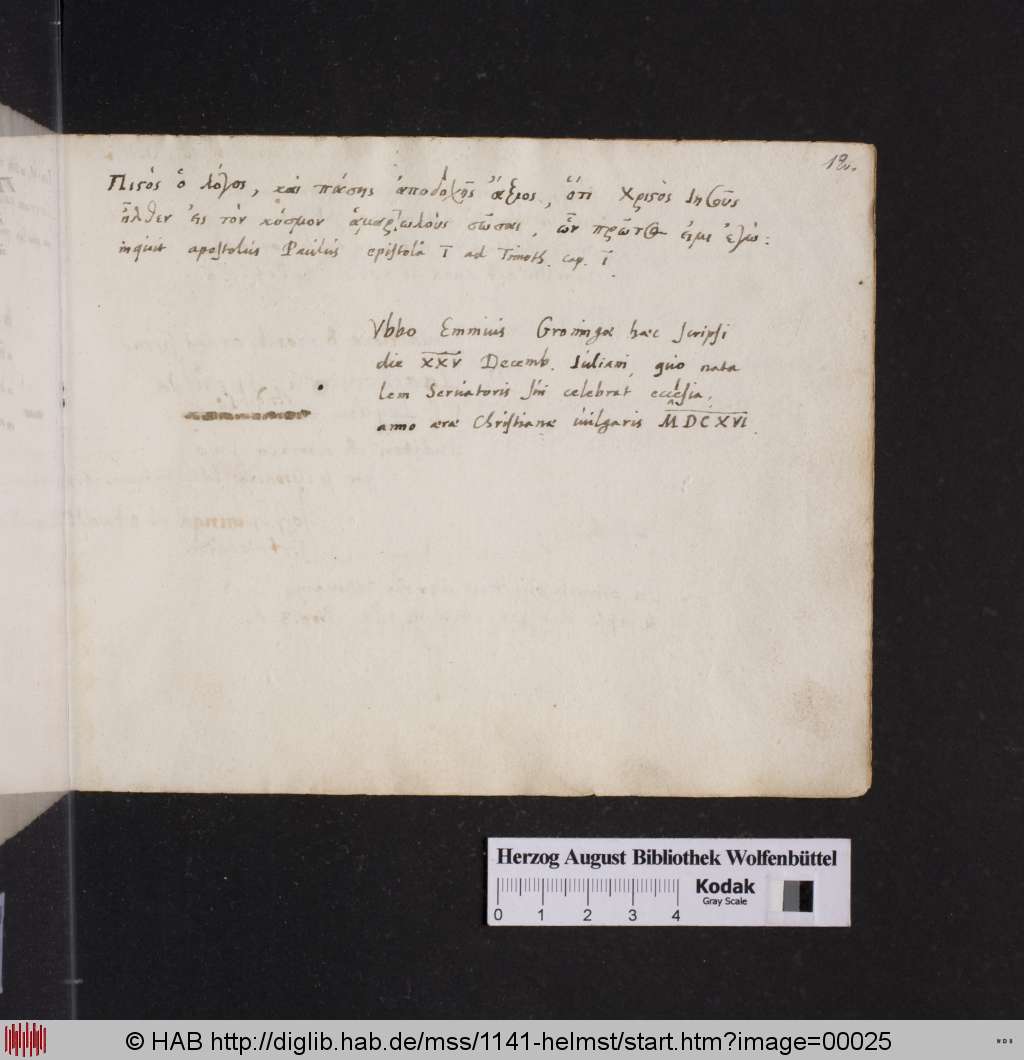 Πιϛὸς ὁ λόγος, καὶ πάσης ἀποδοχῆς ἄξιος, ὅτι Χριϛὸς Ιησοῦς
ἦλθεν εἰς τὸν κόσμον ἁμαρτωλοὺς σῶσαι, ὧν πρῶτος εἰμι ἐγώ:
inquit apostolus Paulus epistolâ I ad Timoth. cap. I.
Vbbo Emmius Groningae haec scripsi
die XXV Decemb. Iuliani, quo nata
lem Seruatoris sui celebrat ecclesia,
anno aerae Christianae uulgaris MDCXVI
Herzog August Bibliothek Wolfenbüttel
Kodak
Gray Scale
0 1 2 3 4
© HAB http://diglib.hab.de/mss/1141-helmst/start.htm?image=00025